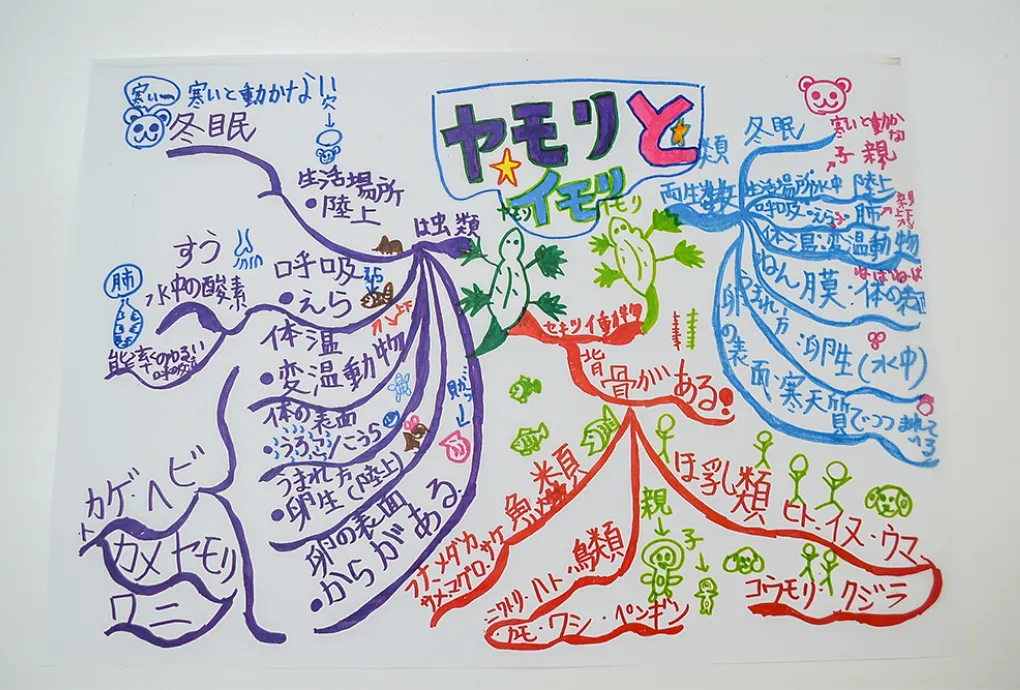 ヤモリと
イモリ
寒いと動かない
穴
冬眠
生活場所
・陸上
は虫類
すう
肺
水中の酸素
能率のわるい
呼吸
呼吸
・えら
体温
・変温動物
体の表面
うろこ/こうら
うまれ方
・卵生(陸上)
卵の表面
・からがある
トカゲ・ヘビ
カメ ヤモリ
ワニ
ヤモリ
イモリ
セキツイ動物
背骨がある!
魚類
フナ・メダカ
サメ・マグロ・サケ
鳥類
ニワトリ・ハト
カモ・ワシ・ペンギン
ほ乳類
ヒト・イヌ・ウマ
コウモリ・クジラ
親
子
両生類
冬眠
寒いと動かな
子 親
生活場所 水中 陸上
呼吸・えら 肺
体温・変温動物
ねん膜・体の表面
ねばねば
うまれ方
卵生(水中)
卵の表面・寒天質でつつまれている